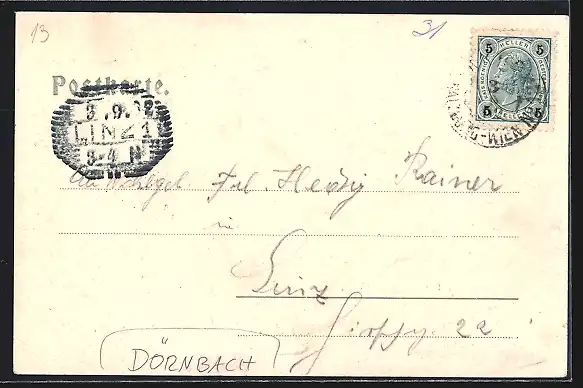 13
31
5 HELLER 5
5 HELLER 5
Postkarte.
3.9.02
LINZ 1
3-4 N
SALZBURG-WIEN
Frl. Hedwig Rainer
in
Linz
22
DÖRNBACH